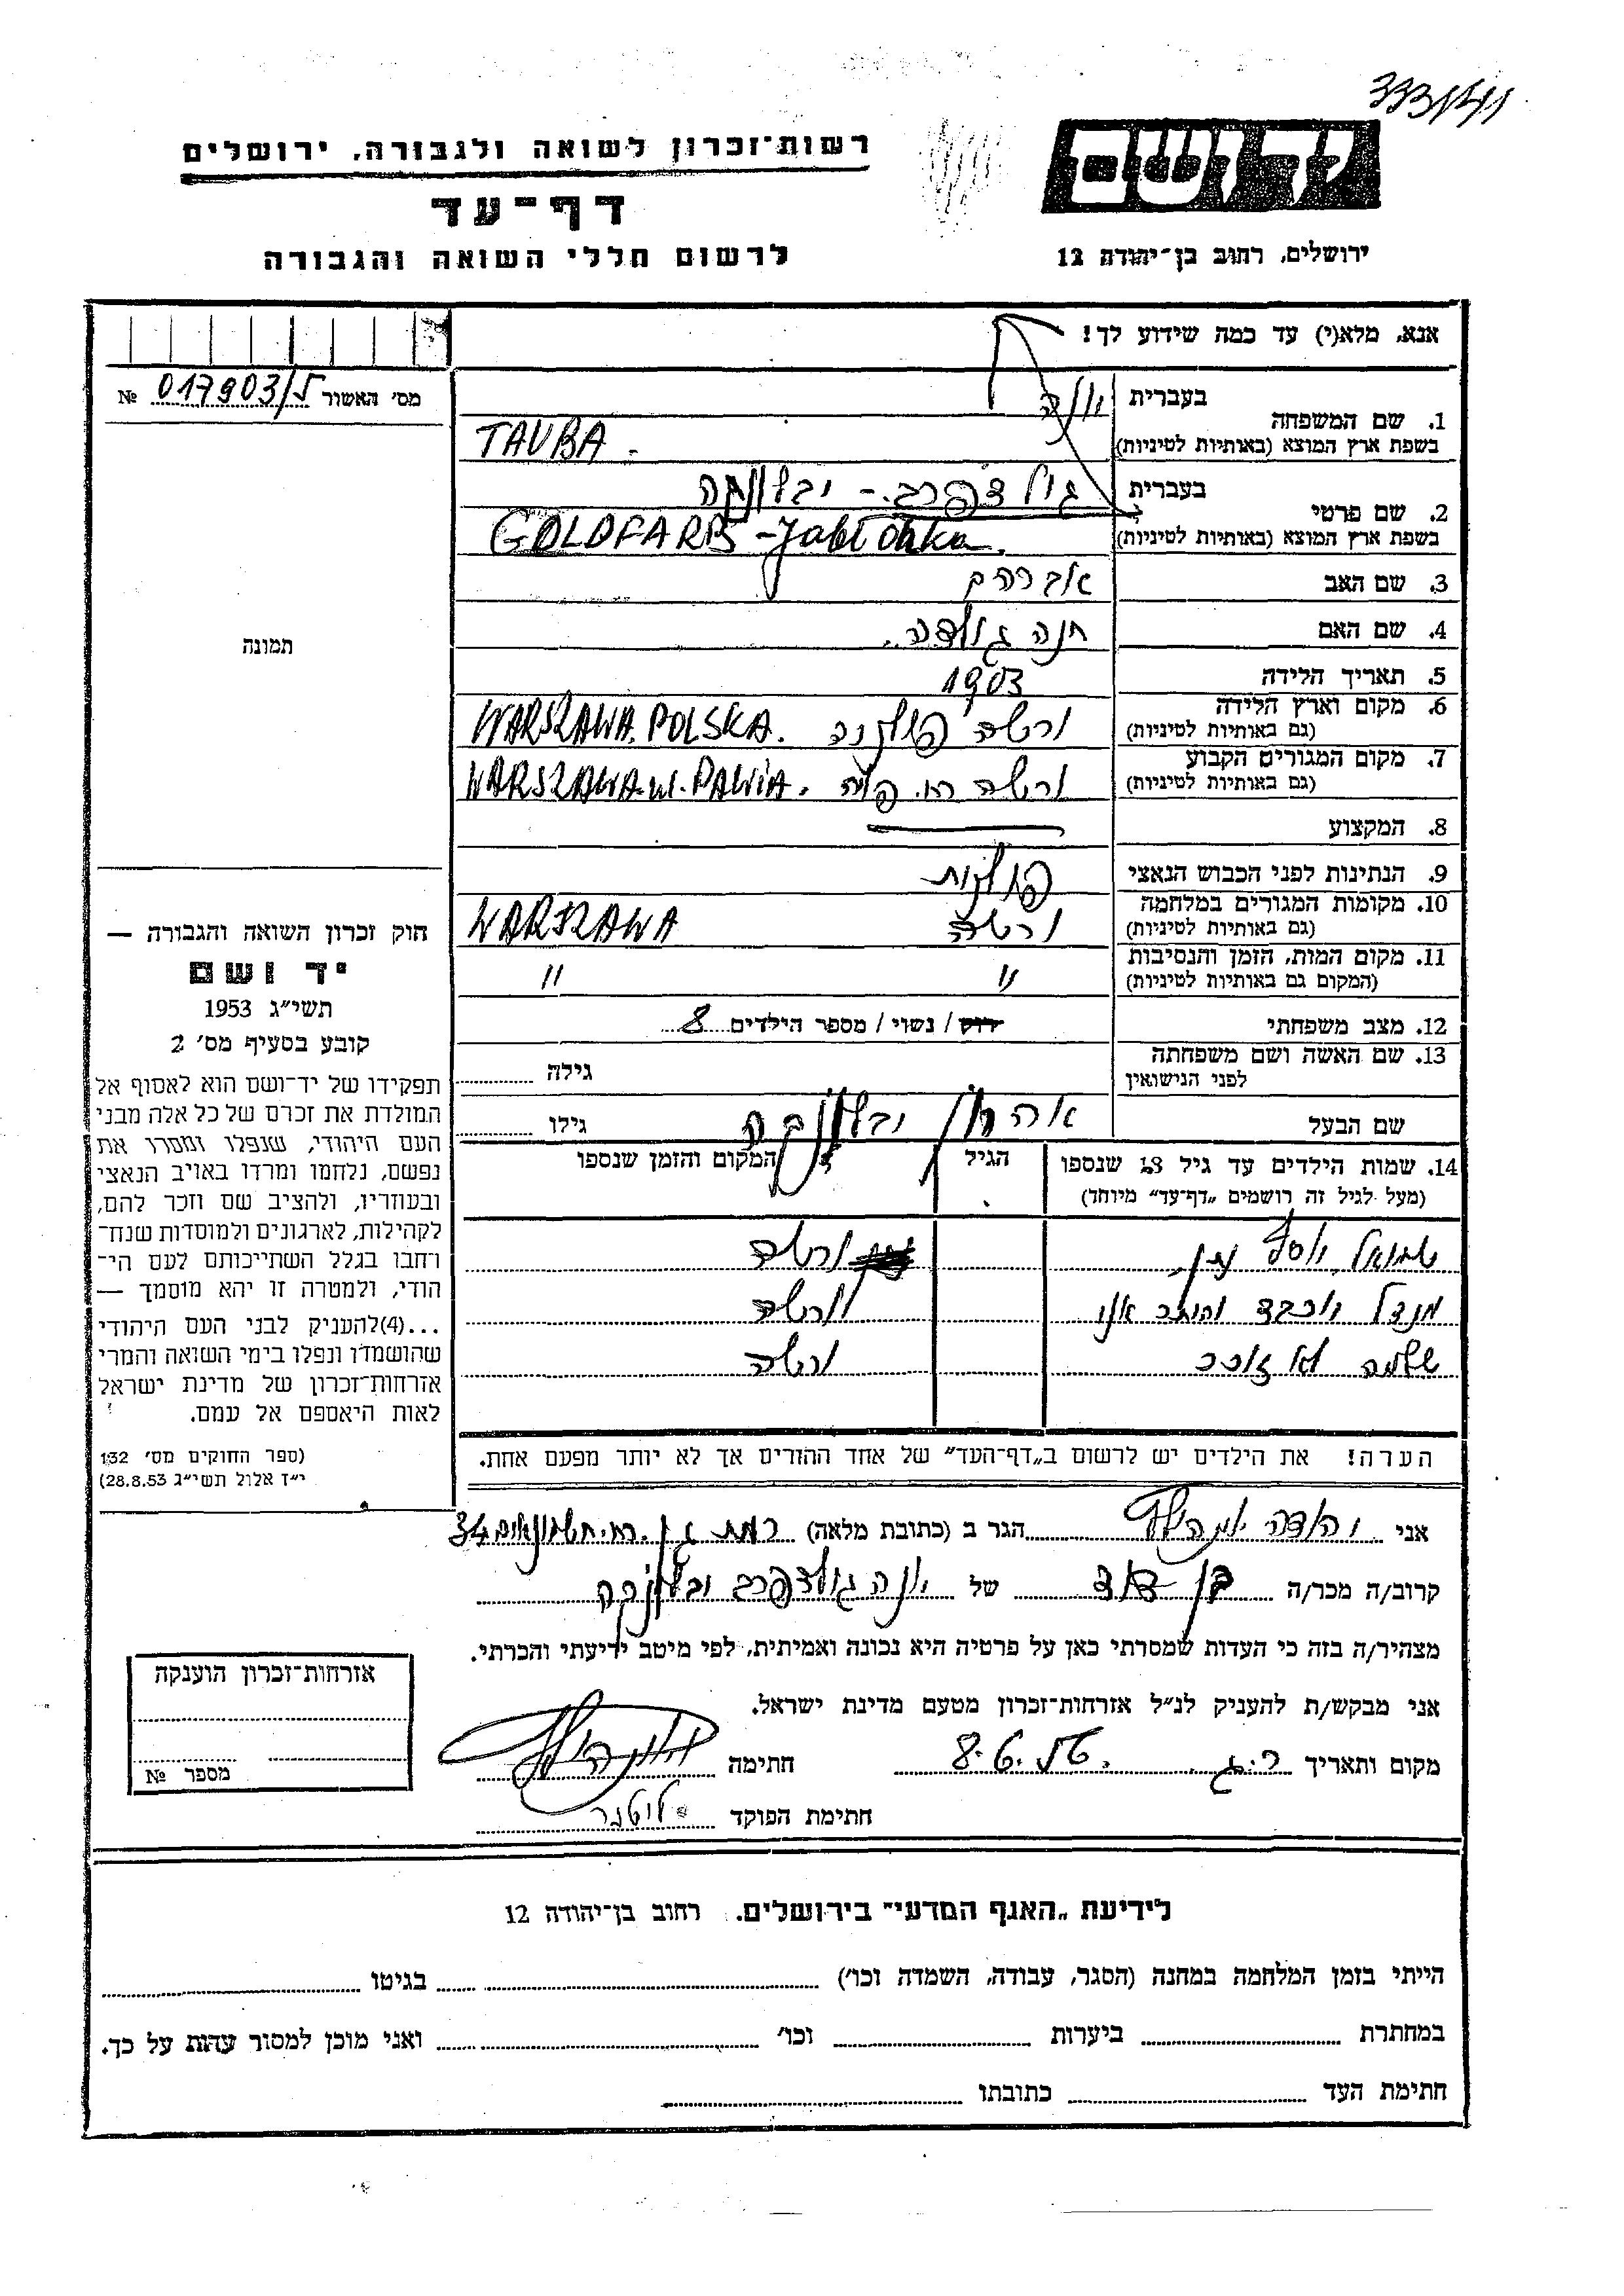 333/141
יד ושם
רשות־זכרון לשואה ולגבורה, ירושלים
דף־עד
לרשום חללי השואה והגבורה
ירושלים, רחוב בן־יהודה 12
אנא, מלא(י) עד כמה שידוע לך!
מס׳ האשור № 017903/5
1. שם המשפחה
בעברית יונה
בשפת ארץ המוצא (באותיות לטיניות) TAUBA
2. שם פרטי
בעברית גולדפרב - יבלונקה
בשפת ארץ המוצא (באותיות לטיניות) GOLDFARB - Jabłonka.
3. שם האב אברהם
4. שם האם חנה גולדה
5. תאריך הלידה 1903
6. מקום וארץ הלידה ורשה פולניה WARSZAWA. POLSKA.
(גם באותיות לטיניות)
7. מקום המגורים הקבוע ורשה רח. פויה WARSZAWA. ul. PAWIA.
(גם באותיות לטיניות)
8. המקצוע
9. הנתינות לפני הכבוש הנאצי פולנית
10. מקומות המגורים במלחמה ורשה WARSZAWA
(גם באותיות לטיניות)
11. מקום המות, הזמן והנסיבות " "
(המקום גם באותיות לטיניות)
12. מצב משפחתי רוק / נשוי / מספר הילדים 8
13. שם האשה ושם משפחתה
לפני הנישואין גילה
שם הבעל אהרון יבלונקה גילו
14. שמות הילדים עד גיל 18 שנספו הגיל המקום והזמן שנספו
(מעל לגיל זה רושמים „דף־עד״ מיוחד)
שמואל, יוסף נתן, ורשה
מנדל יוכבד והיתר אני ורשה
שלמה לא זוכר ורשה
הערה! את הילדים יש לרשום ב„דף־העד״ של אחד ההורים אך לא יותר מפעם אחת.
תמונה
חוק זכרון השואה והגבורה —
יד ושם
תשי״ג 1953
קובע בסעיף מס׳ 2
תפקידו של יד־ושם הוא לאסוף אל
המולדת את זכרם של כל אלה מבני
העם היהודי, שנפלו ומסרו את
נפשם, נלחמו ומרדו באויב הנאצי
ובעוזריו, ולהציב שם וזכר להם,
לקהילות, לארגונים ולמוסדות שנח־
רחבו בגלל השתייכותם לעם הי־
הודי, ולמטרה זו יהא מוסמך —
...(4)להעניק לבני העם היהודי
שהושמדו ונפלו בימי השואה והמרי
אזרחות־זכרון של מדינת ישראל
לאות היאספם אל עמם.
(ספר החוקים מס׳ 132
י״ז אלול תשי״ג 28.8.53)
אני הגר ב (כתובת מלאה) רמת גן. רח. חשמונאים 34
קרוב/ה מכר/ה בן דוד של יונה גולדפרב יבלונקה
מצהיר/ה בזה כי העדות שמסרתי כאן על פרטיה היא נכונה ואמיתית, לפי מיטב ידיעתי והכרתי.
אני מבקש/ת להעניק לנ״ל אזרחות־זכרון מטעם מדינת ישראל.
מקום ותאריך ר.ג. 8.6.56 חתימה
חתימת הפוקד
אזרחות־זכרון הוענקה
מספר №
לידיעת „האגף המדעי״ בירושלים. רחוב בן־יהודה 12
הייתי בזמן המלחמה במחנה (הסגר, עבודה, השמדה וכו׳) בגיטו
במחתרת ביערות וכו׳ ואני מוכן למסור עדות על כך.
חתימת העד כתובתו